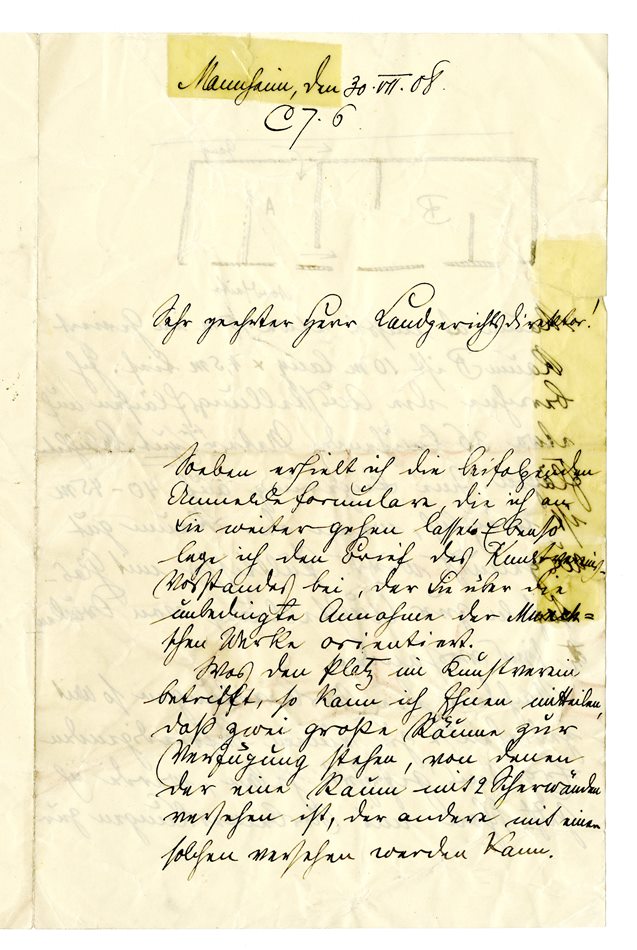 Mannheim, den 30. VII. 08.
C 7. 6
Sehr geehrter Herr Landgerichtsdirektor!
Soeben erhielt ich die beifolgenden
Anmeldeformulare, die ich an
Sie weiter gehen lasse. Ebenso
lege ich den Brief des Kunstvereins-
vorstandes bei, der Sie über die
unbedingte Annahme der Munch=
schen Werke orientiert.
Was den Platz im Kunstverein
betrifft, so kann ich Ihnen mitteilen,
daß zwei große Räume zur
Verfügung stehen, von denen
der eine Raum mit 2 Scherwänden
versehen ist, der andere mit einer
solchen versehen werden kann.